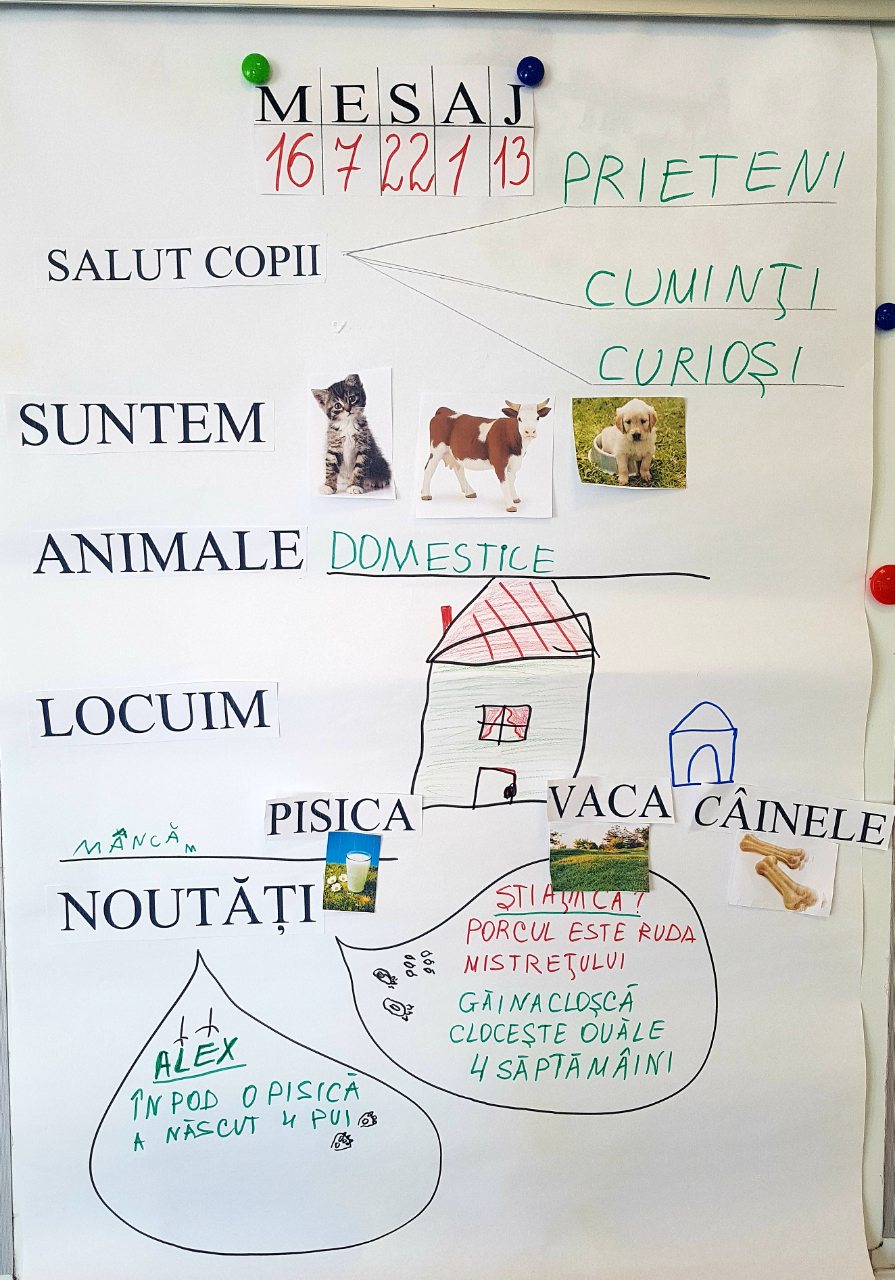 MESAJ
16 7 22 1 13
PRIETENI
SALUT COPII
CUMINȚI
CURIOȘI
SUNTEM
ANIMALE DOMESTICE
LOCUIM
PISICA VACA CÂINELE
MÂNCĂm
NOUTĂȚI
ȘTIAȚI CĂ?
PORCUL ESTE RUDA
MISTREȚULUI
GĂINA CLOȘCĂ
CLOCEȘTE OUĂLE
4 SĂPTĂMÂINI
ALEX
ÎN POD O PISICĂ
A NĂSCUT 4 PUI